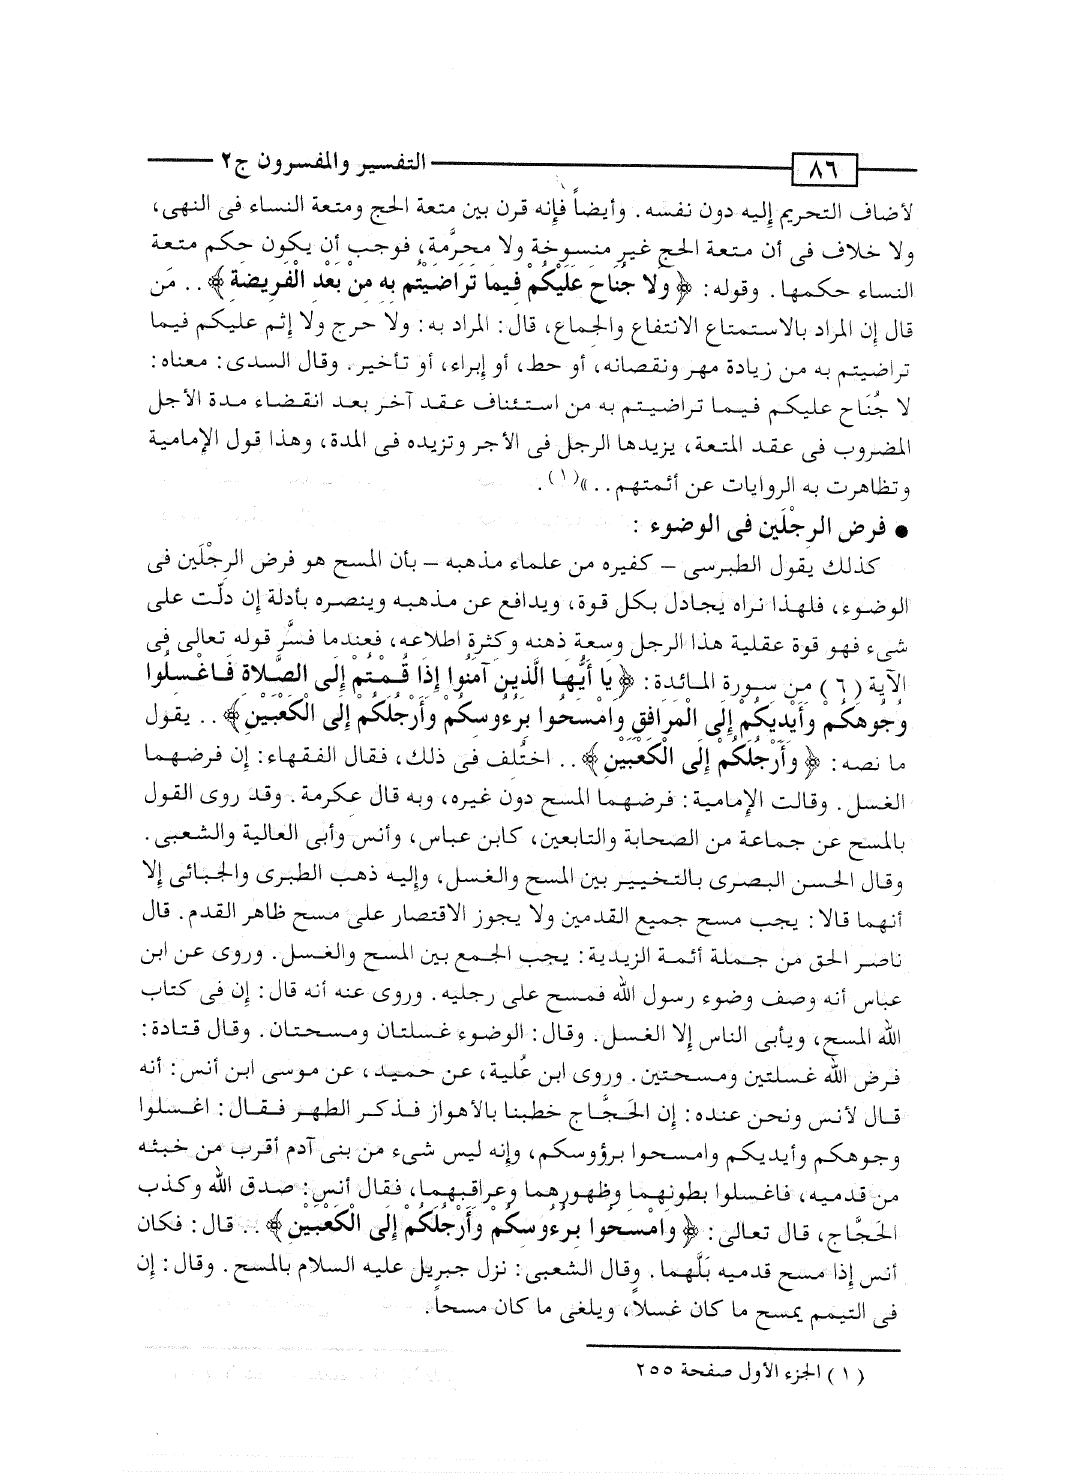 ٨٦ التفسير والمفسرون ج٢
لأضاف التحريم إليه دون نفسه. وأيضاً فإنه قرن بين متعة الحج ومتعة النساء فى النهى،
ولا خلاف فى أن متعة الحج غير منسوخة ولا محرَّمة، فوجب أن يكون حكم متعة
النساء حكمها. وقوله: ﴿وَلا جُنَاحَ عَلَيْكُمْ فِيمَا تَرَاضَيْتُم بِهِ مِنْ بَعْدِ الْفَرِيضَةِ﴾.. مَن
قال إن المراد بالاستمتاع الانتفاع والجماع، قال: المراد به: ولا حرج ولا إثم عليكم فيما
تراضيتم به من زيادة مهر ونقصانه، أو حط، أو إبراء، أو تأخير. وقال السدى: معناه:
لا جُنَاح عليكم فيما تراضيتم به من استئناف عقد آخر بعد انقضاء مدة الأجل
المضروب فى عقد المتعة، يزيدها الرجل فى الأجر وتزيده فى المدة، وهذا قول الإمامية
وتظاهرت به الروايات عن أئمتهم..»(١).
● فرض الرجْلَين فى الوضوء :
كذلك يقول الطبرسى – كغيره من علماء مذهبه – بأن المسح هو فرض الرجْلَين فى
الوضوء، فلهذا نراه يجادل بكل قوة، ويدافع عن مذهبه وينصره بأدلة إن دلَّت على
شىء فهو قوة عقلية هذا الرجل وسعة ذهنه وكثرة اطلاعه، فعندما فسَّر قوله تعالى فى
الآية (٦) من سورة المائدة: ﴿يَا أَيُّهَا الَّذِينَ آمَنُوا إِذَا قُمْتُمْ إِلَى الصَّلاةِ فَاغْسِلُوا
وُجُوهَكُمْ وَأَيْدِيَكُمْ إِلَى الْمَرَافِقِ وَامْسَحُوا بِرُءُوسِكُمْ وَأَرْجُلَكُمْ إِلَى الْكَعْبَيْنِ﴾.. يقول
ما نصه: ﴿وَأَرْجُلَكُمْ إِلَى الْكَعْبَيْنِ﴾.. اختُلف فى ذلك، فقال الفقهاء: إن فرضهما
الغسل. وقالت الإمامية: فرضهما المسح دون غيره، وبه قال عكرمة. وقد روى القول
بالمسح عن جماعة من الصحابة والتابعين، كابن عباس، وأنس وأبى العالية والشعبى.
وقال الحسن البصرى بالتخيير بين المسح والغسل، وإليه ذهب الطبرى والجبائى إلا
أنهما قالا: يجب مسح جميع القدمين ولا يجوز الاقتصار على مسح ظاهر القدم. قال
ناصر الحق من جملة أئمة الزيدية: يجب الجمع بين المسح والغسل. وروى عن ابن
عباس أنه وصف وضوء رسول الله فمسح على رجليه. وروى عنه أنه قال: إن فى كتاب
الله المسح، ويأبى الناس إلا الغسل. وقال: الوضوء غسلتان ومسحتان. وقال قتادة:
فرض الله غسلتين ومسحتين. وروى ابن عُلية، عن حميد، عن موسى ابن أنس: أنه
قال لأنس ونحن عنده: إن الحَجَّاج خطبنا بالأهواز فذكر الطهر فقال: اغسلوا
وجوهكم وأيديكم وامسحوا برؤوسكم، وإنه ليس شىء من بنى آدم أقرب من خبثه
من قدميه، فاغسلوا بطونهما وظهورهما وعراقبهما، فقال أنس: صدق الله وكذب
الحَجَّاج، قال تعالى: ﴿وَامْسَحُوا بِرُءُوسِكُمْ وَأَرْجُلَكُمْ إِلَى الْكَعْبَيْنِ﴾.. قال: فكان
أنس إذا مسح قدميه بَلَّهما. وقال الشعبى: نزل جبريل عليه السلام بالمسح. وقال: إن
فى التيمم يمسح ما كان غسلاً، ويلغى ما كان مسحاً.
(١) الجزء الأول صفحة ٢٥٥